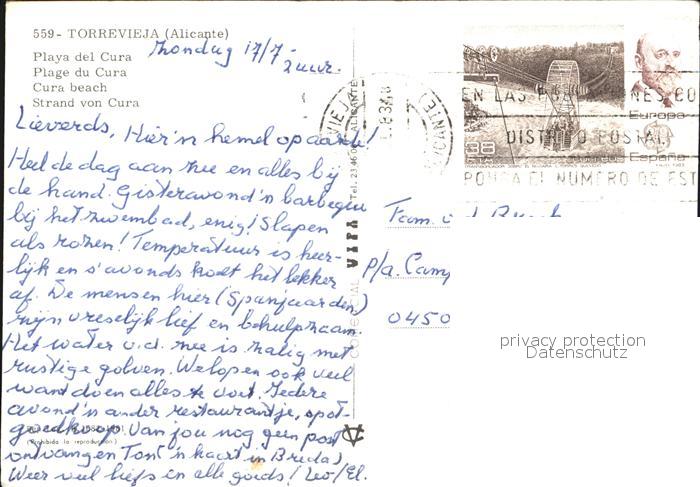 559 - TORREVIEJA (Alicante)
Playa del Cura
Plage du Cura
Cura beach
Strand von Cura
Zondag 17/7-
2 uur.
Lieverds, Hier 'n hemel op aarde!
Heel de dag aan zee en alles bij
de hand. Gisteravond 'n barbeque
bij het zwembad, enig! Slapen
als rozen! Temperatuur is heer-
lijk en s'avonds koelt het lekker
af. De mensen hier (Spanjaarden)
zijn vreselijk lief en behulpzaam.
Het water v.d. zee is zalig met
rustige golven. We lopen ook veel
want doen alles te voet. Iedere
avond 'n ander restaurantje, spot-
goedkoop. Van jou nog geen post
ontvangen Ton ('n kaart in Breda)
Weer veel liefs en alle goeds! Leo/El.
(Prohibida la reproducción)
COMERCIAL VIPA
ALICANTE
EN LAS
DISTRITO POSTAL
PONGA EL NUMERO DE
38
Europa
España
Fam.
p/a. Camp
0450
privacy protection
Datenschutz